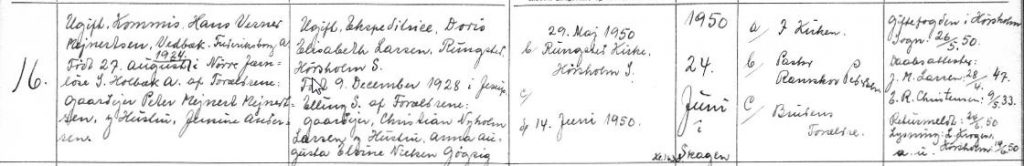 16.
Ugift, Kommis, Hans Verner
Mejnertsen, Vedbæk. Frederiksborg A
1924
Født 27. august i Nörre Jærn-
löse S. Holbæk A. af Forældrene:
gaardejer Peter Mejnert Mejnert-
sen, og Hustru, Jensine Ander-
sen.
Ugift, Ekspeditrice, Doris
Elisabeth Larsen, Rungsted
Hörsholm S.
Født 9. December 1928 i
Elling S. af Forældrene:
gaardejer, Christian Nyholm
Larsen, og Hustru, Anna Au-
gusta Elvine Nielsen
29. Maj 1950
b/ Rungsted Kirke.
Hörsholm S.
c/
d/ 14. Juni 1950.
1950
24.
Juni
i
Skagen
a/ I Kirken.
b/ Pastor
Ramskov
c/ Brudens
Forældre.
Giftefogden i Hörsholm
Sogn. 26/5. 50.
Daabsattester:
J. M. Larsen: 28/4. 47.
E. R. Christensen: 9/5. 33.
Returmeldt: 26/6 50
Lysning: E. Krogen.
a. u. Hörsholm